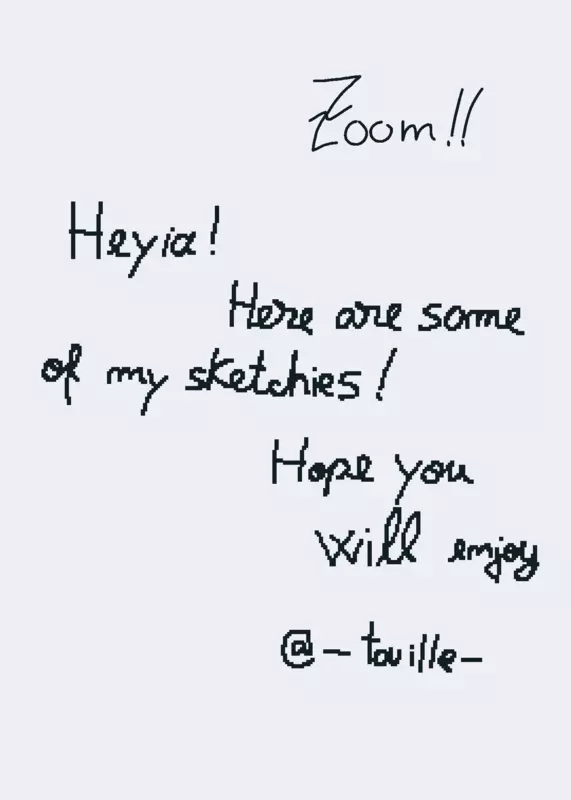 Zoom!!
Heyia!
Here are some
of my sketchies!
Hope you
will enjoy
@-taville-